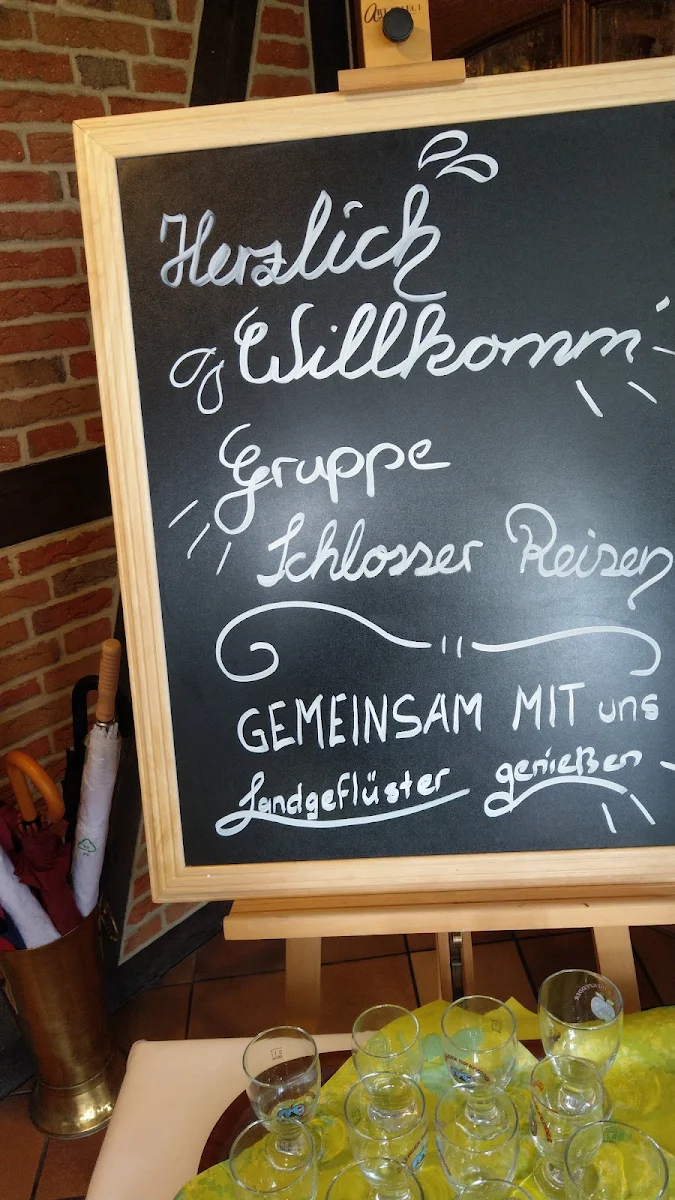 Herzlich
Willkomm
Gruppe
Schlosser Reisen
GEMEINSAM MIT uns
Landgeflüster genießen